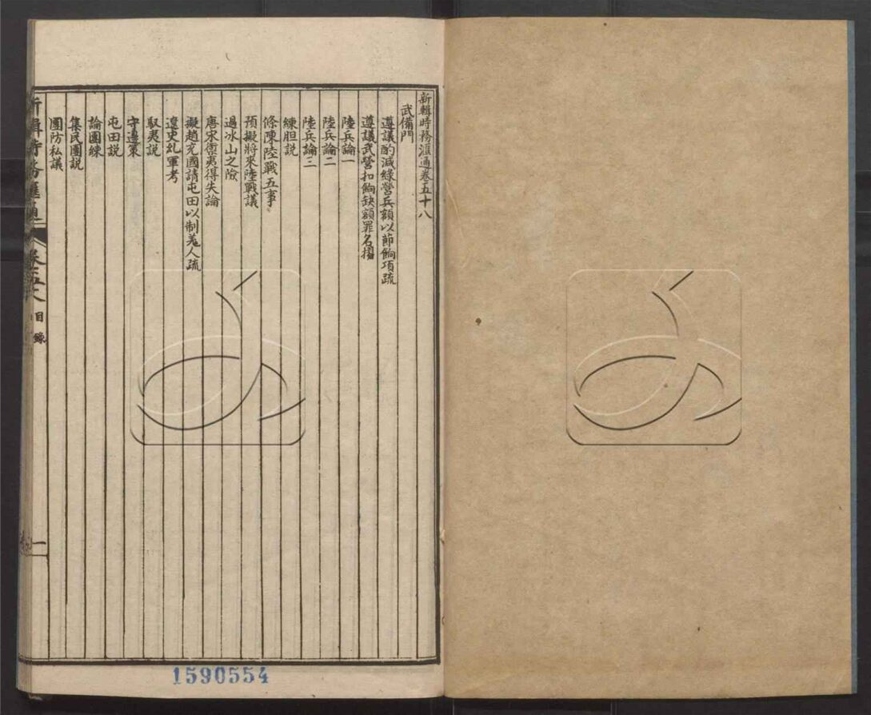 新輯時務滙通卷五十八
武備門
遵議酌減綠營兵額以節餉項疏
遵議武營扣餉缺額罪名摺
陸兵論一
陸兵論二
陸兵論三
練胆說
條陳陸戰五事
預擬將來陸戰議
過冰山之險
唐宋禦夷得失論
擬趙充國請屯田以制羌人疏
遼史乣軍考
馭夷說
守邊策
屯田說
論團練
集民團說
團防私議
新輯時務滙通
卷五十八
目錄
一
1590554